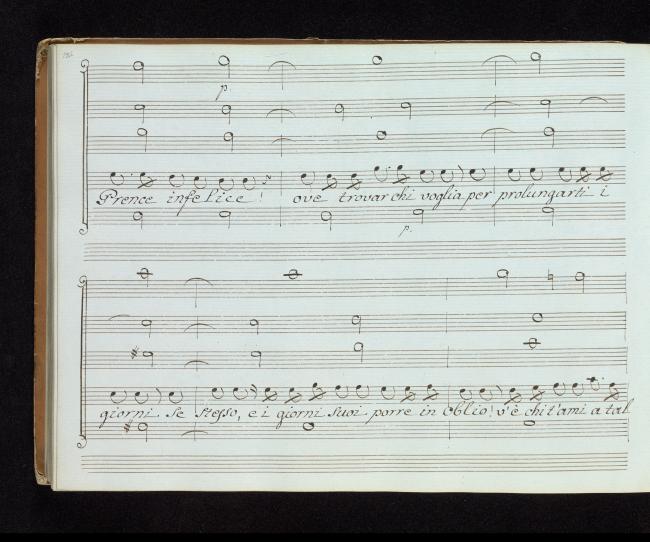 p.
Prence infelice! ove trovar chi voglia per prolungarti i
p.
giorni se stesso, e i giorni suoi porre in Oblio! v'è chi t'ami a tal